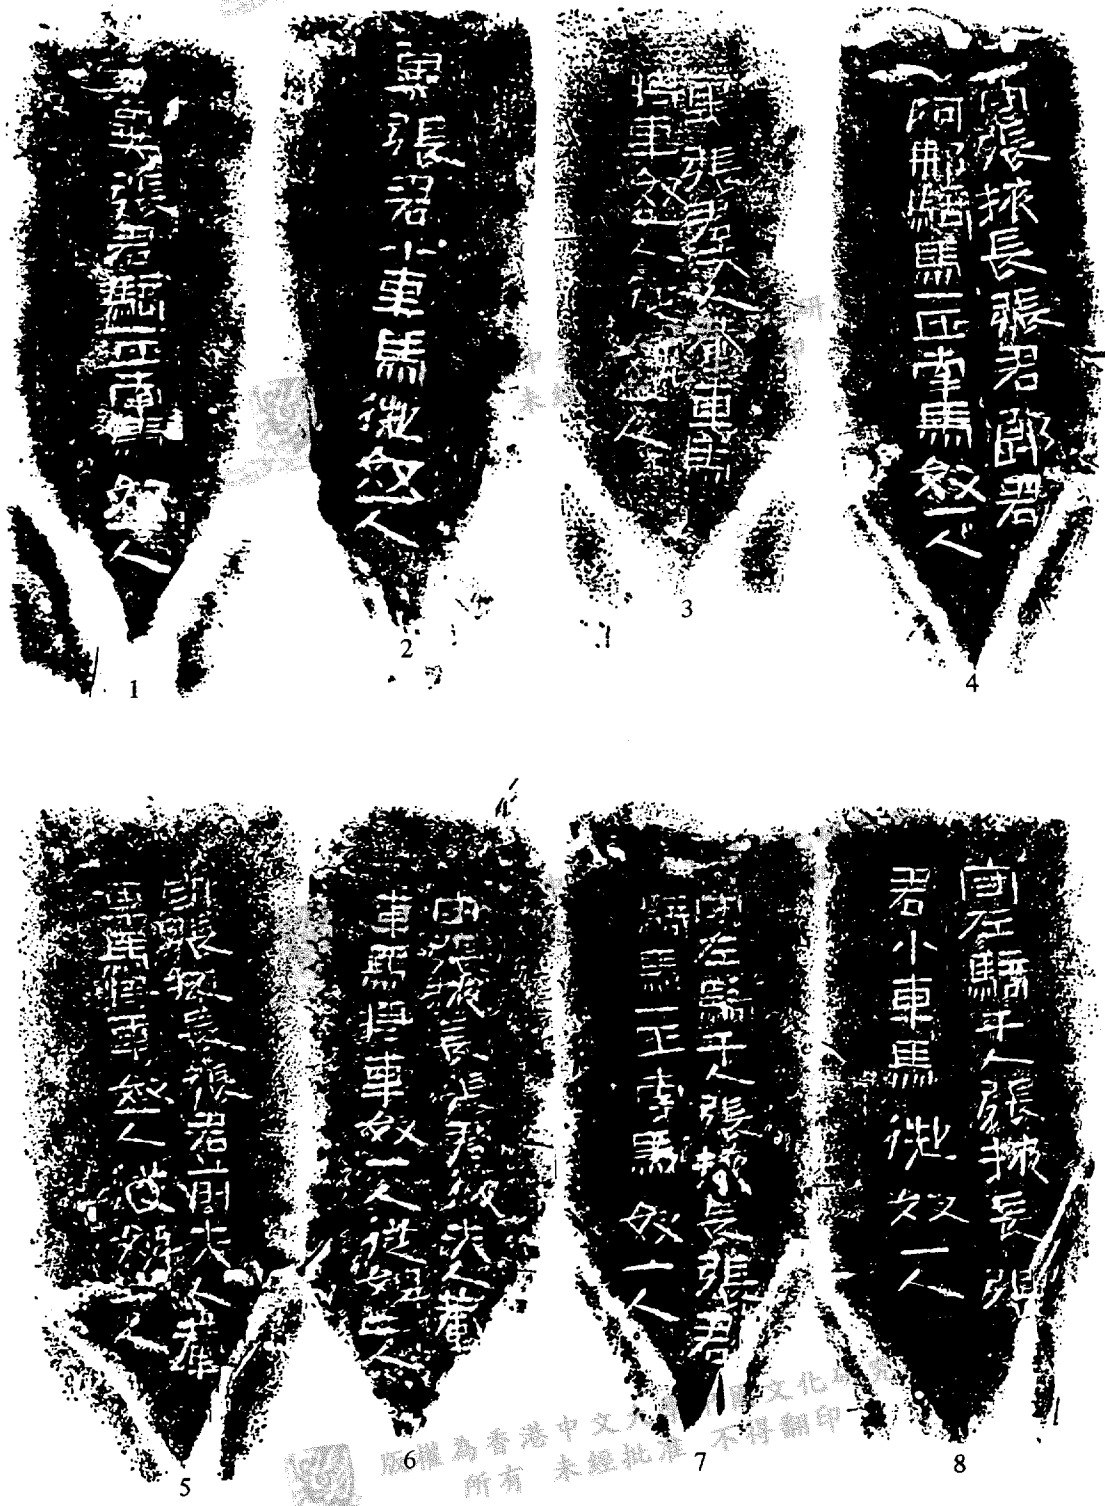 冀張君騎一匹牽馬奴一人
1
冀張君小車馬御奴一人
2
冀張君夫人輦車馬
將車奴一人從婢一人
3
守張掖長張君郎君
阿邪騎馬一匹牽馬奴一人
4
守張掖長張君前夫人輦
車馬將車奴一人從婢一人
5
守張掖長張君後夫人輦
車馬將車奴一人從婢二人
6
守左騎千人張掖長張君
騎馬一匹牽馬奴一人
7
守左騎千人張掖長張
君小車馬御奴一人
8
版權為香港中文大學中國文化研究
所有 未經批准 不得翻印